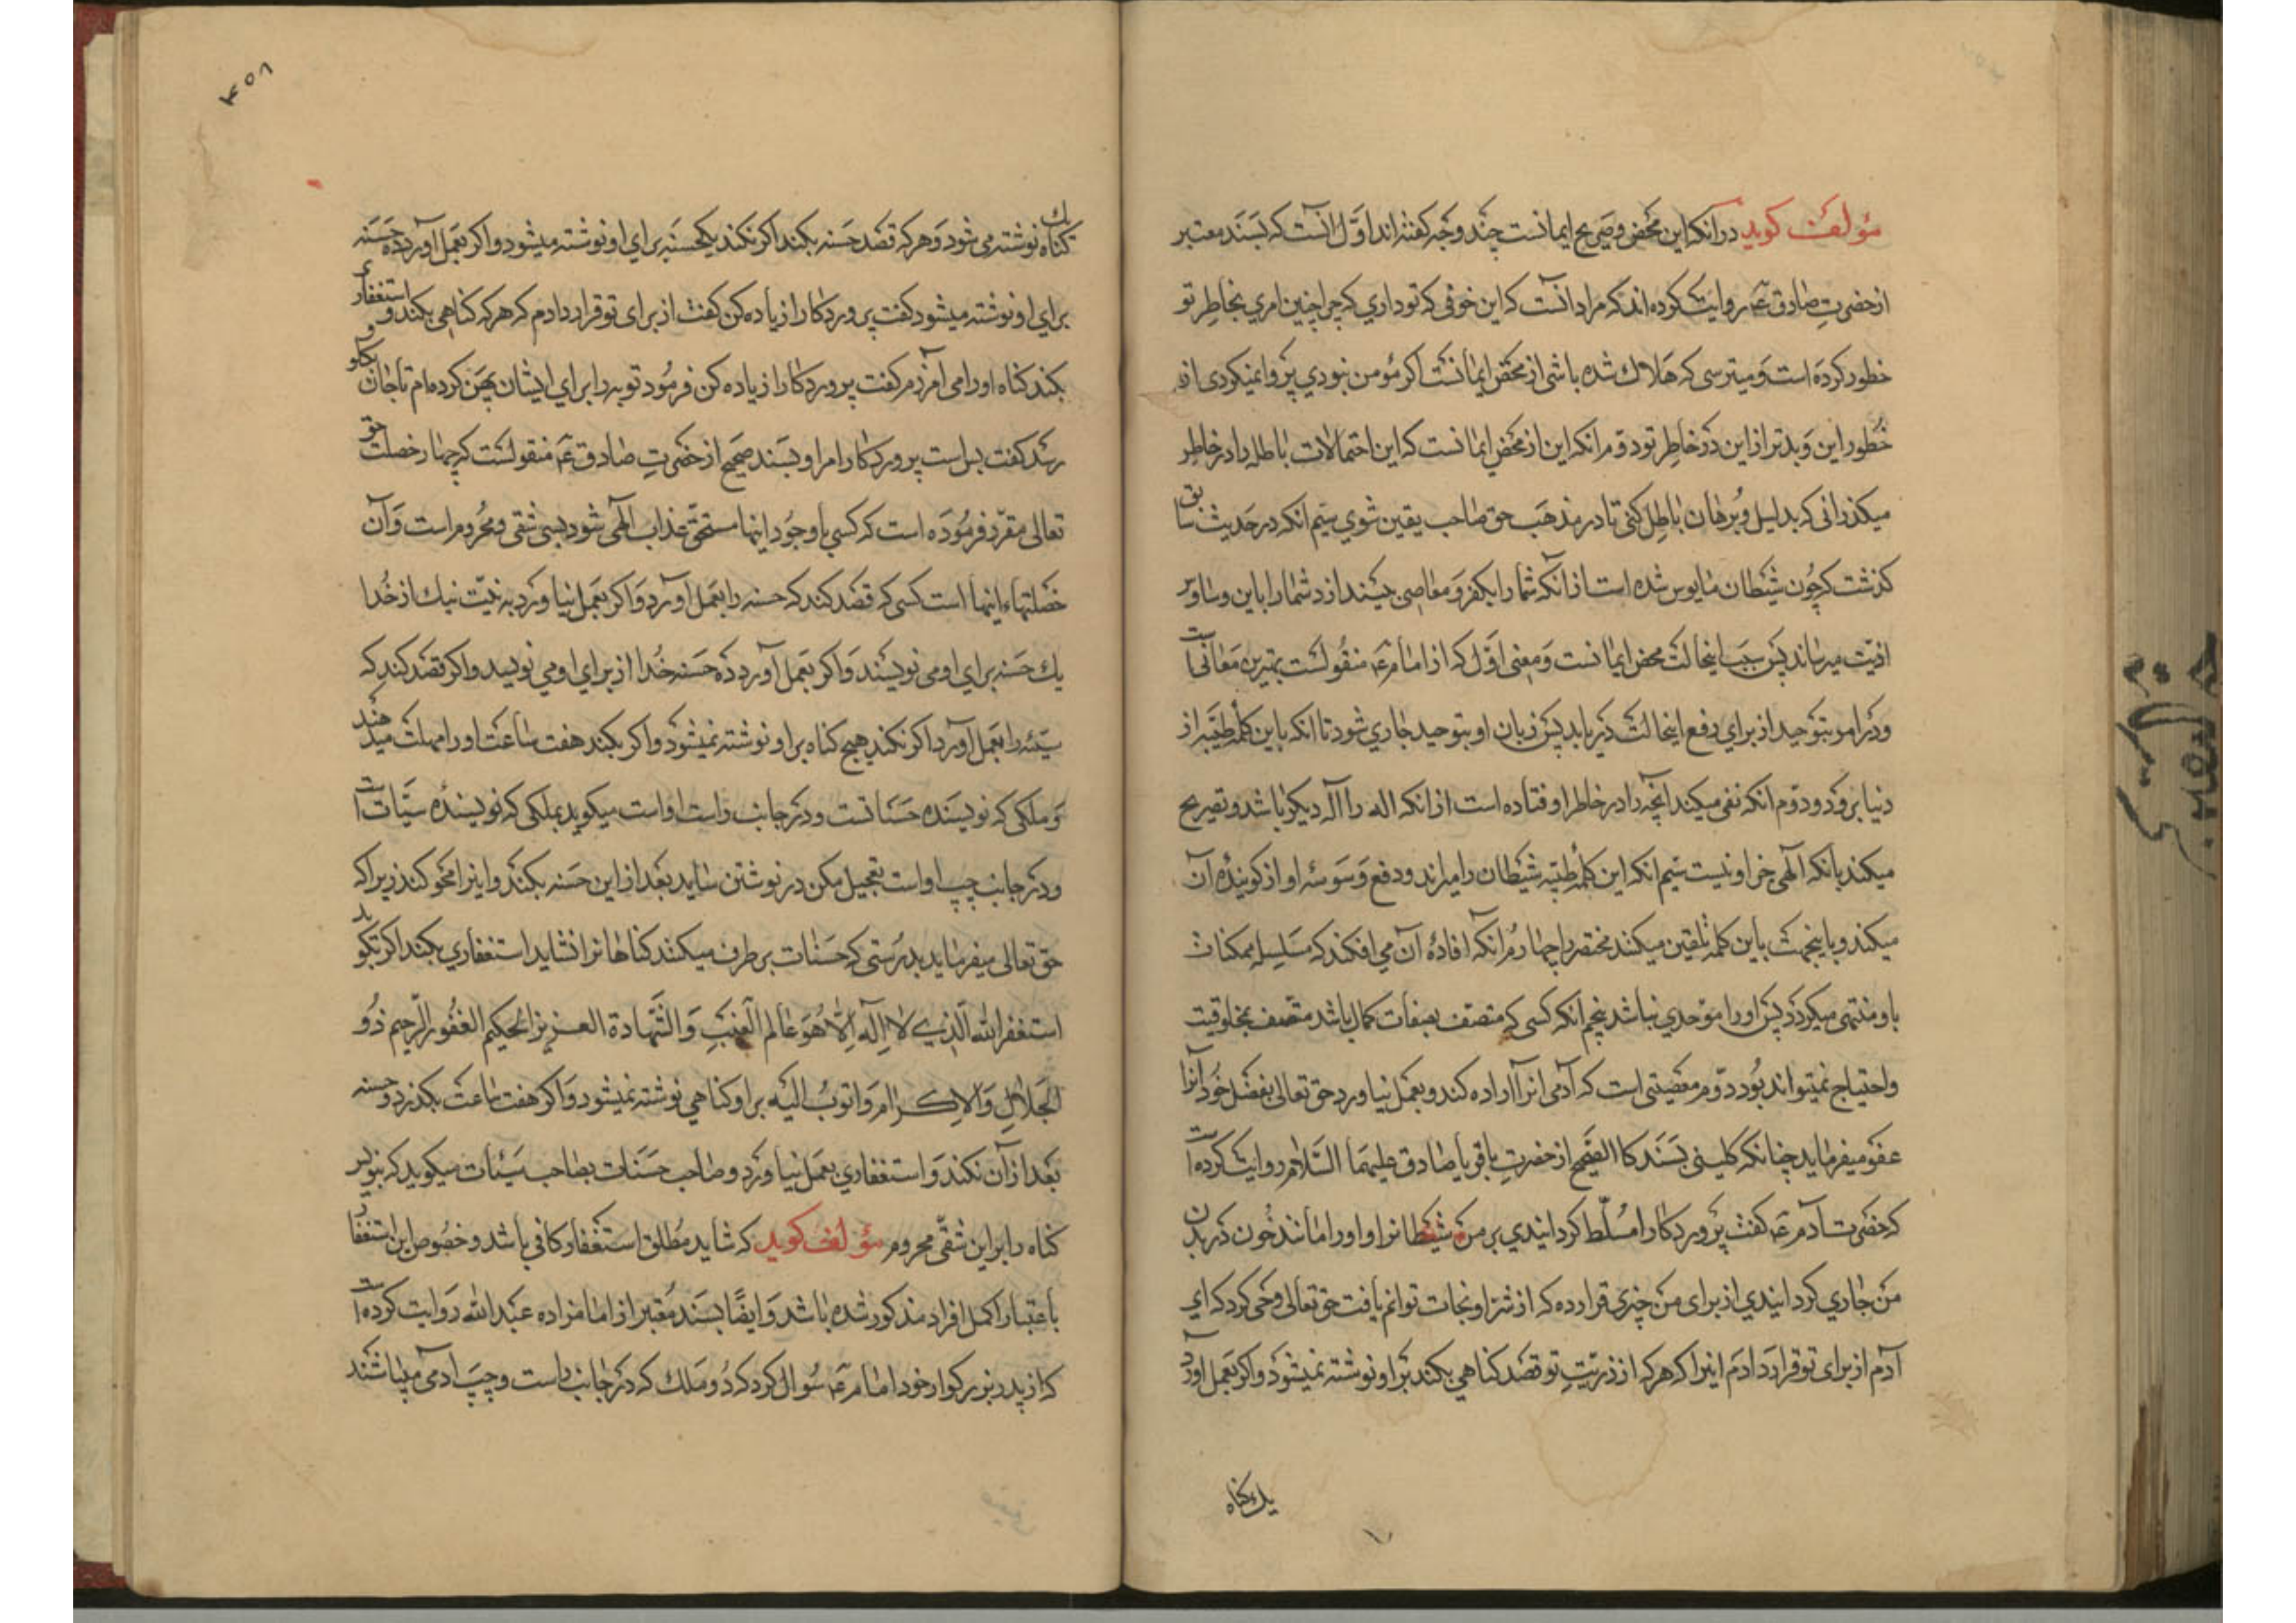 مؤلف کوید در انکه این محض و صریح ایمانست چند وجه کفته اند اول انست که بسند معتبر
از حضرت صادق ع روایت کرده اند که مراد انست که این خوفی که تو داری که چرا چنین امری بخاطر تو
خطور کرده است و میترسی که هلاک شده باشی از محض ایمانست اکر مؤمن نبودی پروا نمیکردی از
خطور این و بدتر از این در خاطر تو دوم انکه این از محض ایمانست که این احتمالات باطله را در خاطر
میکذرانی که بدلیل و برهان باطل کنی تا در مذهب حق صاحب یقین شوی سیم انکه در حدیث سابق
کذشت که چون شیطان مایوس شده است از انکه شما را بکفر و معاصی بیندازد شما را باین وساوس
اذیت میرساند پس بسبب اینحالت محض ایمانست و معنی اول که از امام ع منقولست بهترین معانی است
و در امر بتوحید از برای دفع اینحالت دیر باید پس زبان او بتوحید جاری شود تا انکه باین کلمه طیبه از
دنیا برود و دوم انکه نفی میکند انچه را در خاطر او افتاده است از انکه اله را آله دیکر باشد و تصریح
میکند بانکه آلهی جز او نیست سیم انکه این کلمه طیبه شیطان را میراند و دفع وسوسه او از کوینده آن
میکند و باینجهت باین کلمه تلقین میکنند محتضر را چهارم انکه افاده آن می افکند که سلسله ممکنات
باو منتهی میکردد پس او را موحدی نباشد پنجم انکه کسی که متصف بصفات کمال باشد متصف بمخلوقیت
و احتیاج نمیتواند بود دوم معصیتی است که آدمی انرا اراده کند و بعمل نیاورد حق تعالی بفضل خود آنرا
عفو میفرماید چنانکه کلینی بسند کالصحیح از حضرت باقر یا صادق علیهما السلام روایت کرده است
که حضرت آدم ع کفت پروردکارا مسلط کردانیدی بر من شیطانرا و او را مانند خون در بدن
من جاری کردانیدی از برای من چیزی قرار ده که از شر او نجات توانم یافت حق تعالی وحی کرد که ای
آدم از برای تو قرار دادم اینرا که هر که از ذریت تو قصد کناهی بکند بر او نوشته نمیشود و اکر بعمل آورد
یک کناه
۴۵۸
یک کناه نوشته می شود و هر که قصد حسنه بکند اکر نکند یکحسنه برای او نوشته میشود و اکر بعمل آورد ده حسنه
برای او نوشته میشود کفت پروردکارا زیاده کن کفت از برای تو قرار دادم که هر که کناهی بکند و استغفار
بکند کناه او را می آمرزم کفت پروردکارا زیاده کن فرمود توبه را برای ایشان پهن کرده ام تا جان بکلو
رسد کفت بس است پروردکارا مرا و بسند صحیح از حضرت صادق ع منقولست که چهار خصلت حق
تعالی مقرر فرموده است که کسی با وجود اینها مستحق عذاب الهی شود بسی شقی و محروم است و آن
خصلتهاء اینها است کسی که قصد کند که حسنه را بعمل آورد و اکر بعمل نیاورد به نیت نیک از خدا
یک حسنه برای او می نویسند و اکر بعمل آورد ده حسنه خدا از برای او می نویسد و اکر قصد کند که
سیئه را بعمل آورد اکر نکند هیچ کناه بر او نوشته نمیشود و اکر بکند هفت ساعت او را مهلت میدهند
و ملکی که نویسنده حسناتست و در جانب راست او است میکوید بملکی که نویسنده سیئات است
و در جانب چپ او است تعجیل مکن در نوشتن شاید بعد از این حسنه بکند و اینرا محو کند زیرا که
حق تعالی میفرماید بدرستی که حسنات بر طرف میکنند کناهانرا شاید استغفاری بکند اکر بکوید
استغفر الله الذی لا اله الا هو عالم الغیب و الشهادة العزیز الحکیم الغفور الرحیم ذو
الجلال و الاکرام و اتوب الیه بر او کناهی نوشته نمیشود و اکر هفت ساعت بکذرد و حسنه
بعد از آن نکند و استغفاری بعمل نیاورد و صاحب حسنات بصاحب سیئات میکوید که بنویس
کناه را بر این شقی محروم مؤلف کوید که شاید مطلق استغفار کافی باشد و خصوص این استغفار
باعتبار اکمل افراد مذکور شده باشد و ایضا بسند معتبر از امامزاده عبد الله روایت کرده است
که از پدر بزرکوار خود امام ع سوال کرد که دو ملک که در جانب راست و چپ ادمی میباشند